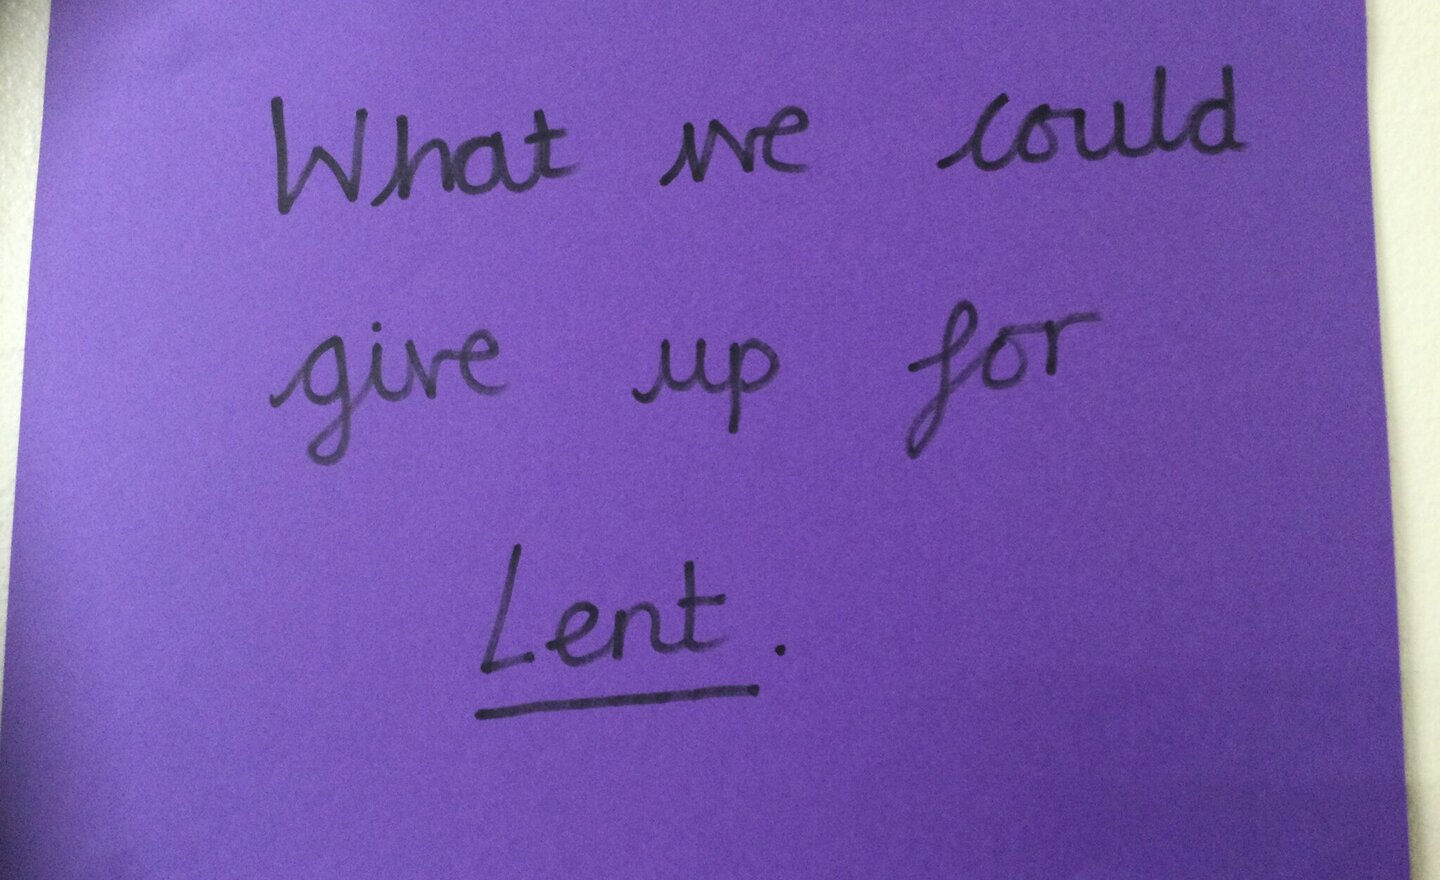 What we could
give up for
Lent.